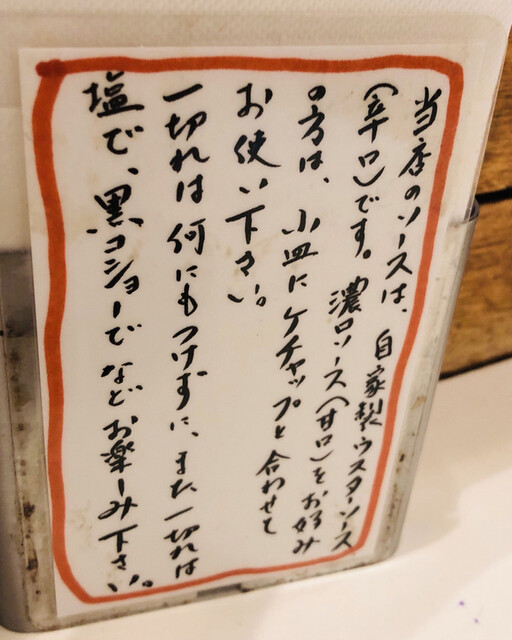 当店のソースは、自家製ウスターソース
(辛口)です。濃口ソース(甘口)をお好み
の方は、小皿にケチャップと合わせて
お使い下さい。
一切れは何にもつけずに、また一切れは
塩で、黒コショーでなどお楽しみ下さい。